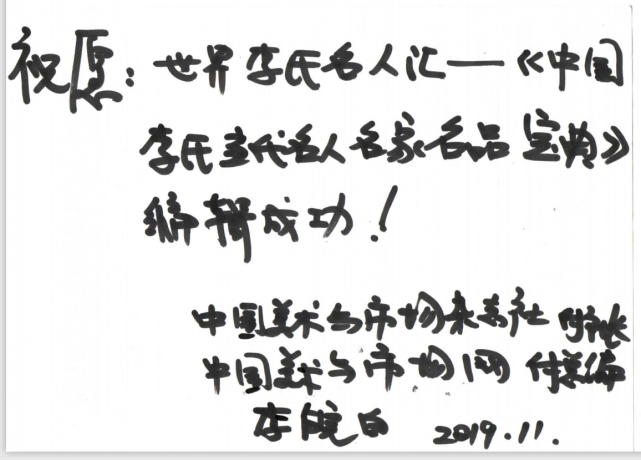 祝愿：世界李氏名人汇——《中国
李氏当代名人名家名品宝典》
编辑成功！
中国美术与市场杂志社 付社长
中国美术与市场网 付总编
李 2019.11.